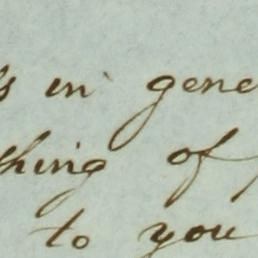 s in gene
thing of
to you